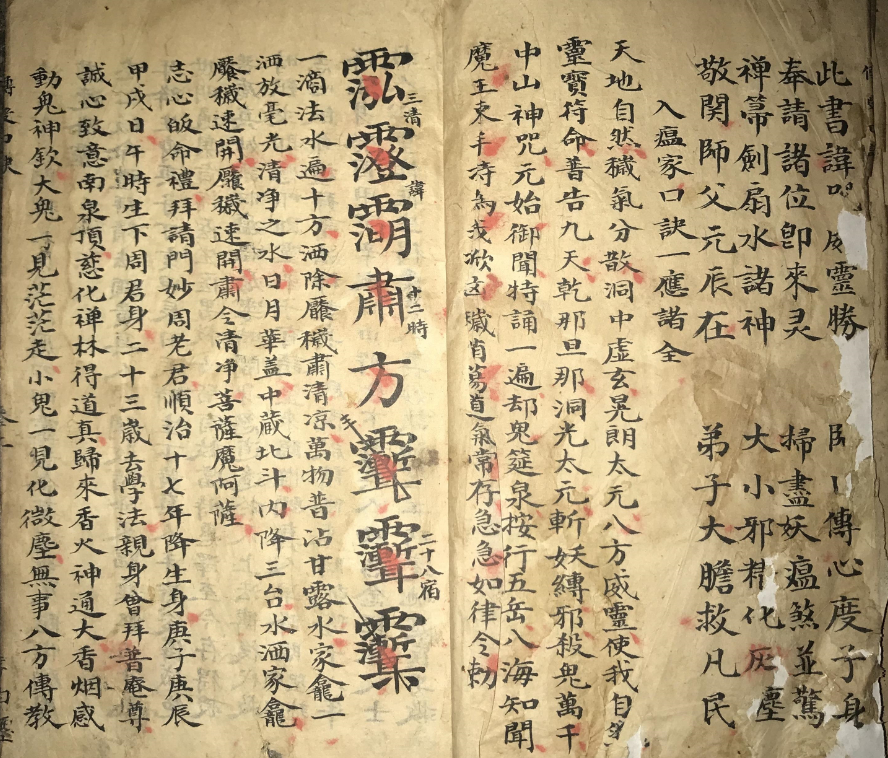 此書諱 威靈勝 傳心度子身
奉請諸位卽來灵 掃盡妖瘟煞並驚
禅箒劍扇水諸神 大小邪精化灰塵
敬関師父元辰在 弟子大膽救凡民
入瘟家口訣一應諸全
天地自然穢氣分散洞中虛玄晃朗太元八方威靈使我自
靈寶符命普告九天乾那旦那洞光太元斬妖縛邪殺鬼萬千
中山神咒元始御聞特誦一遍却鬼筵泉按行五岳八海知聞
魔王束手侍為我 穢消蕩道氣常存急急如律令勅
三清 諱 十二時 二十八宿
肅方
一滴法水遍十方洒除靨穢肅清凉萬物普沾甘露水家龕一
洒放毫光清净之水日月華盖中蔵北斗内降三台水洒家龕
靨穢速開靨穢速開肅令清净菩薩魔阿薩
志心皈命禮拜請門妙周老君順治十七年降生身庚子庚辰
甲戌日午時生下周君身二十三歲去學法親身曾拜普庵尊
誠心致意南泉頂慈化禅林得道真歸來香火神通大香烟感
動鬼神欽大鬼一見茫茫走小鬼一見化微塵無事八方傳教